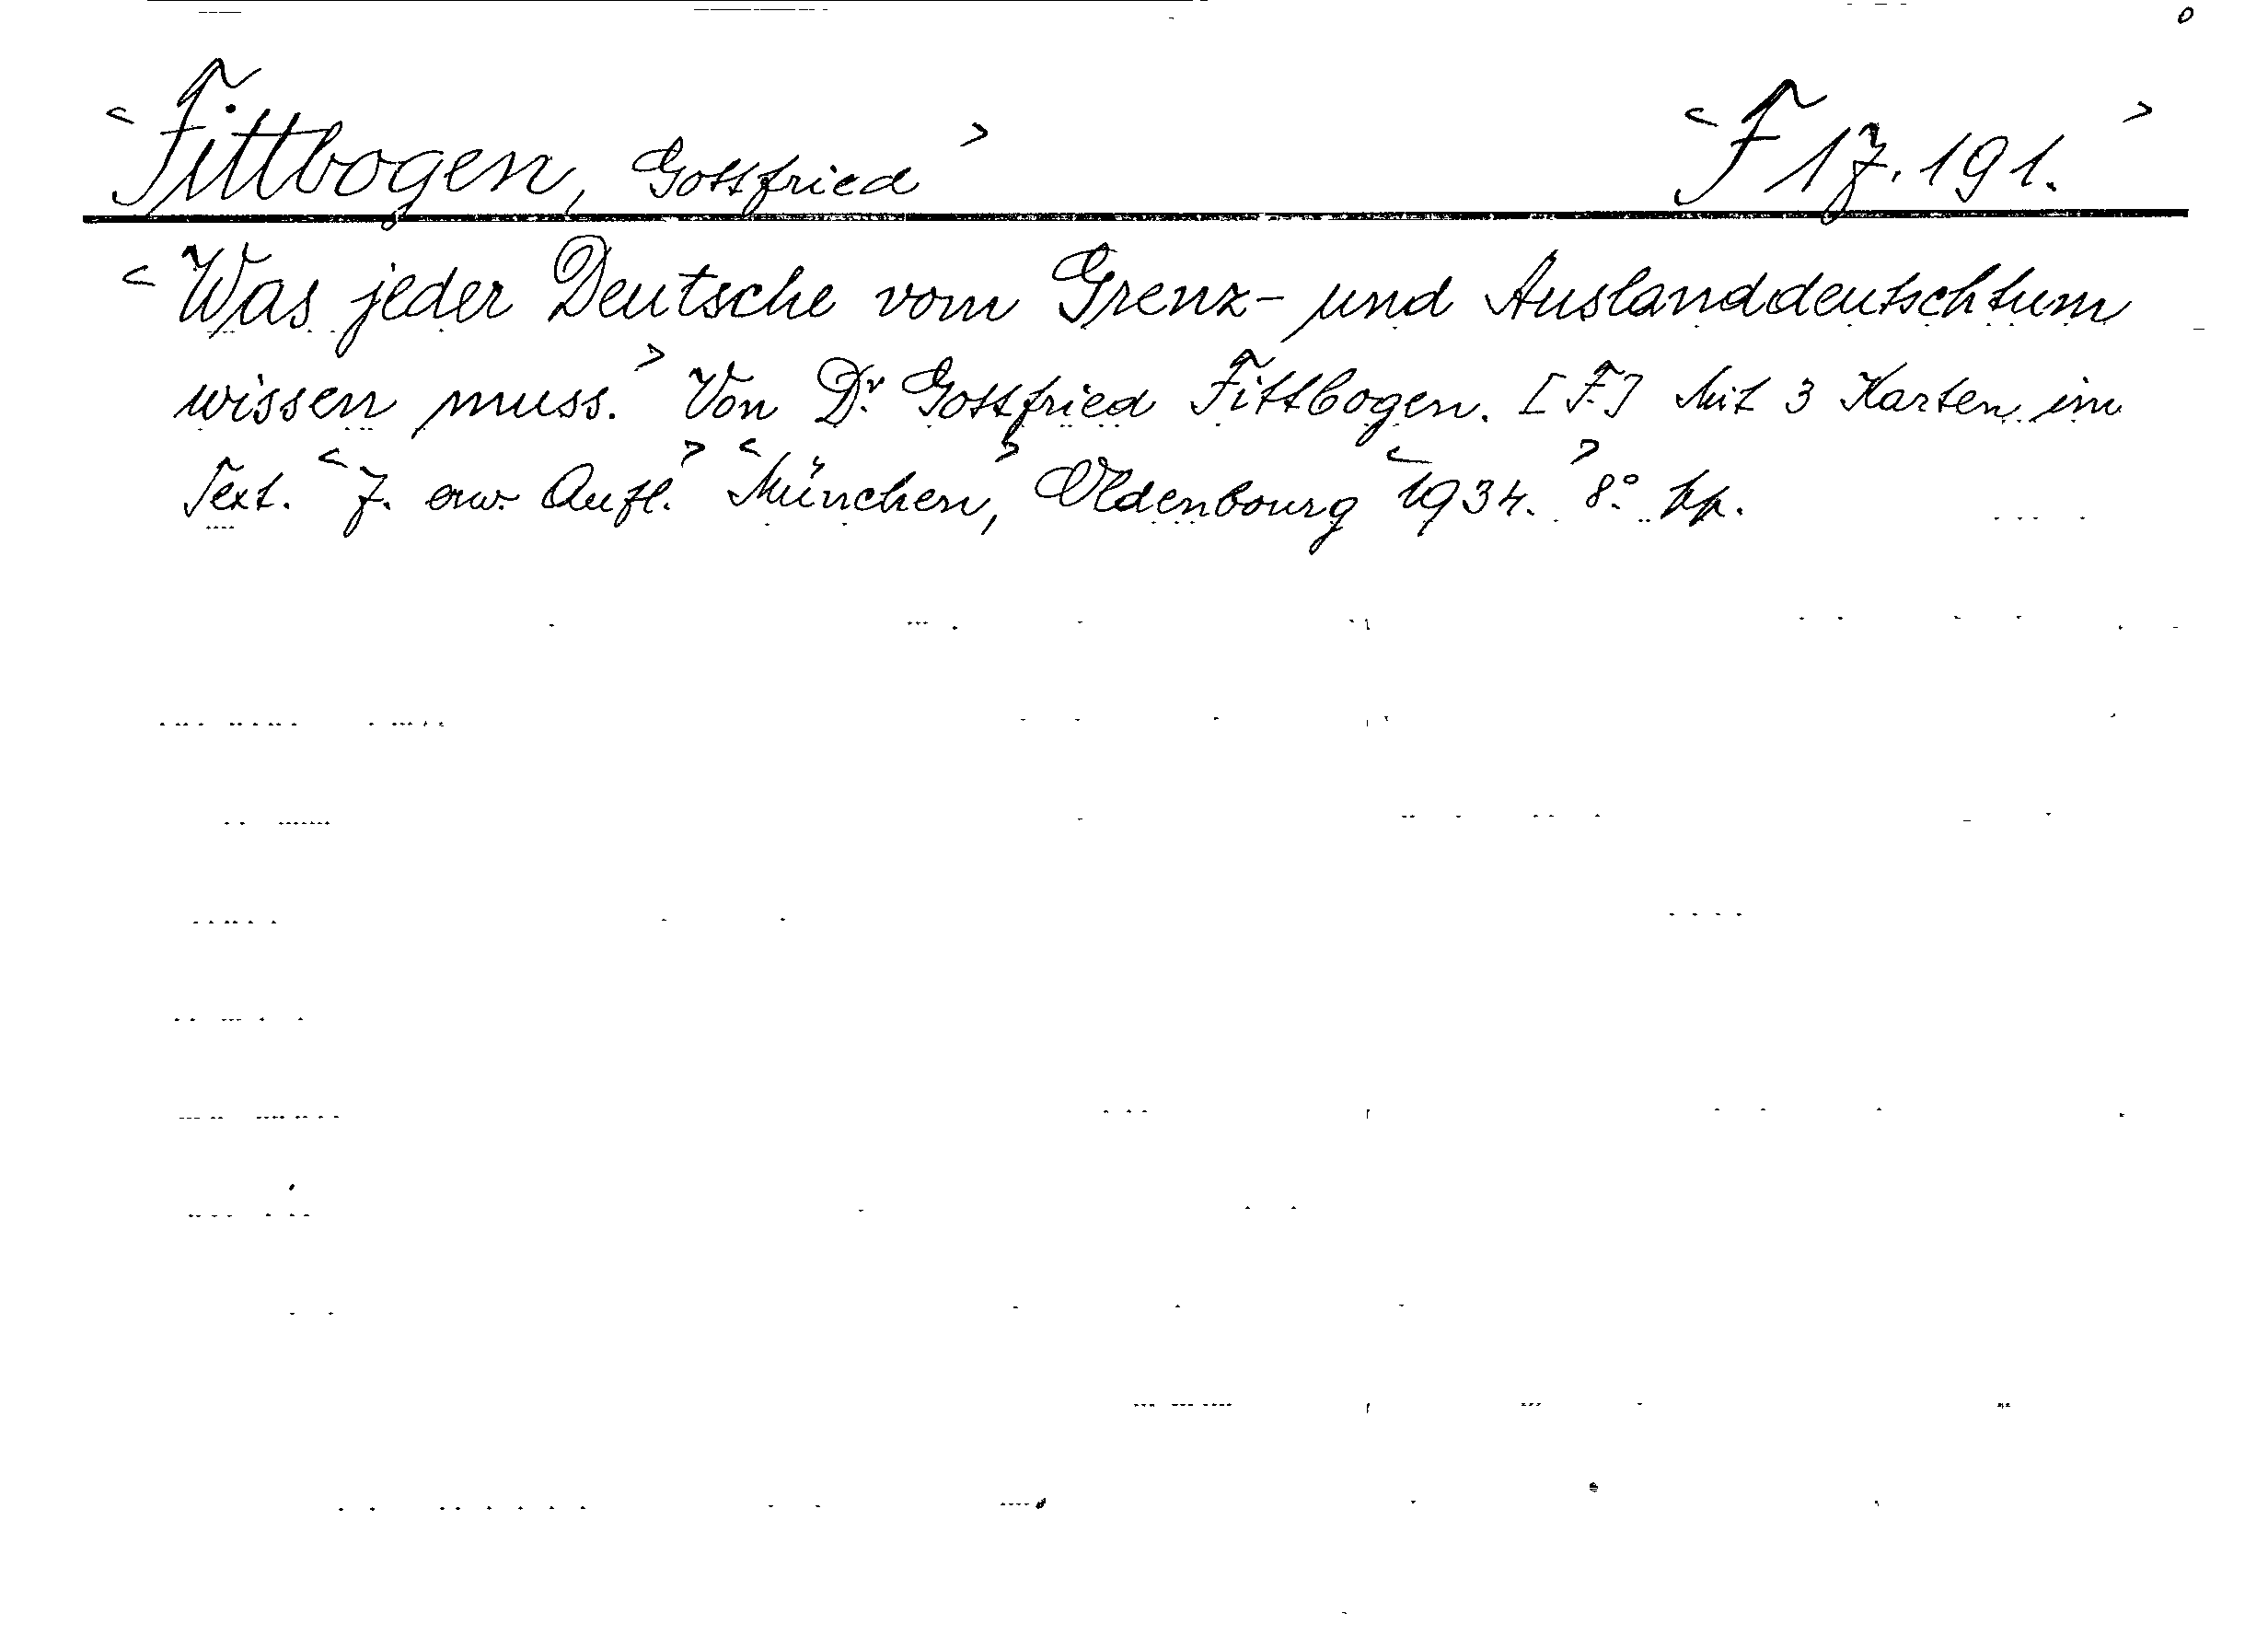 <Fittbogen, Gottfried> <F 17.191.>
<Was jeder Deutsche vom Grenz- und Auslanddeutschtum
wissen muss.> Von Dr. Gottfried Fittbogen. [F.] Mit 3 Karten im
Text. <7. erw. Aufl.> <München,> Oldenbourg <1934.> 8°. hp.